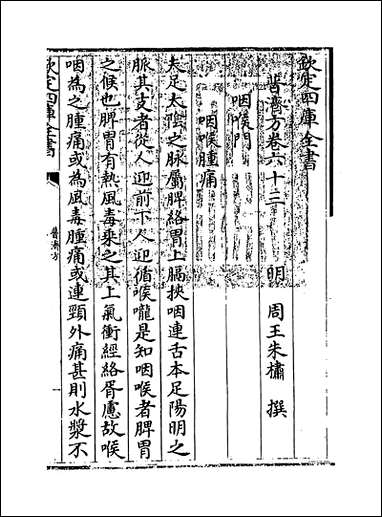 欽定四庫全書
普濟方卷六十三
明 周王朱橚 撰
咽喉門
咽喉腫痛
夫足太隂之脉屬脾絡胃上膈挾咽連舌本足陽明之
脈其支者從人迎前下人迎循喉嚨是知咽喉者脾胃
之候也脾胃有熱風毒乗之其上氣衝經絡胥慮故喉
咽為之腫痛或為風毒腫痛或連頸外痛甚則水漿不
欽定四庫全書
普濟方
一